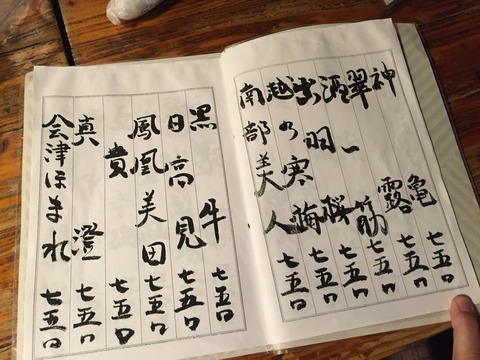 神亀 七五〇
翠露 七五〇
酒一筋 七五〇
出羽桜 七五〇
越の寒梅 七五〇
南部美人 七五〇
黒牛 七五〇
日高見 七五〇
鳳凰美田 七五〇
貴 七五〇
真澄 七五〇
会津ほまれ 七五〇